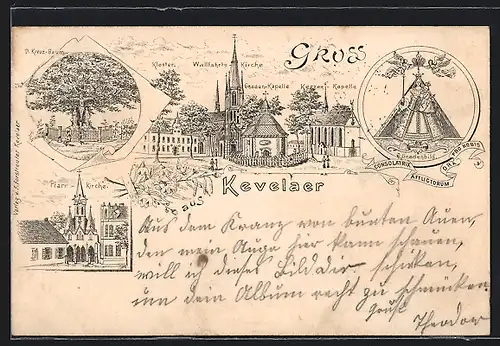 D. Kreuz-Baum
Kloster.
Wallfahrts Kirche
Gnaden-Kapelle
Kerzen-Kapelle
Gruss
aus
Kevelaer
Gnadenbild
CONSOLATRIX
AFFLICTORUM
ORA
PRO NOBIS
Pfarr Kirche.
Aus dem Kranz von bunten Auen,
den mein Auge hier kann schauen,
will ich dieses Bild Dir schicken,
um dein Album recht zu schmücken
Gruß
Theodor